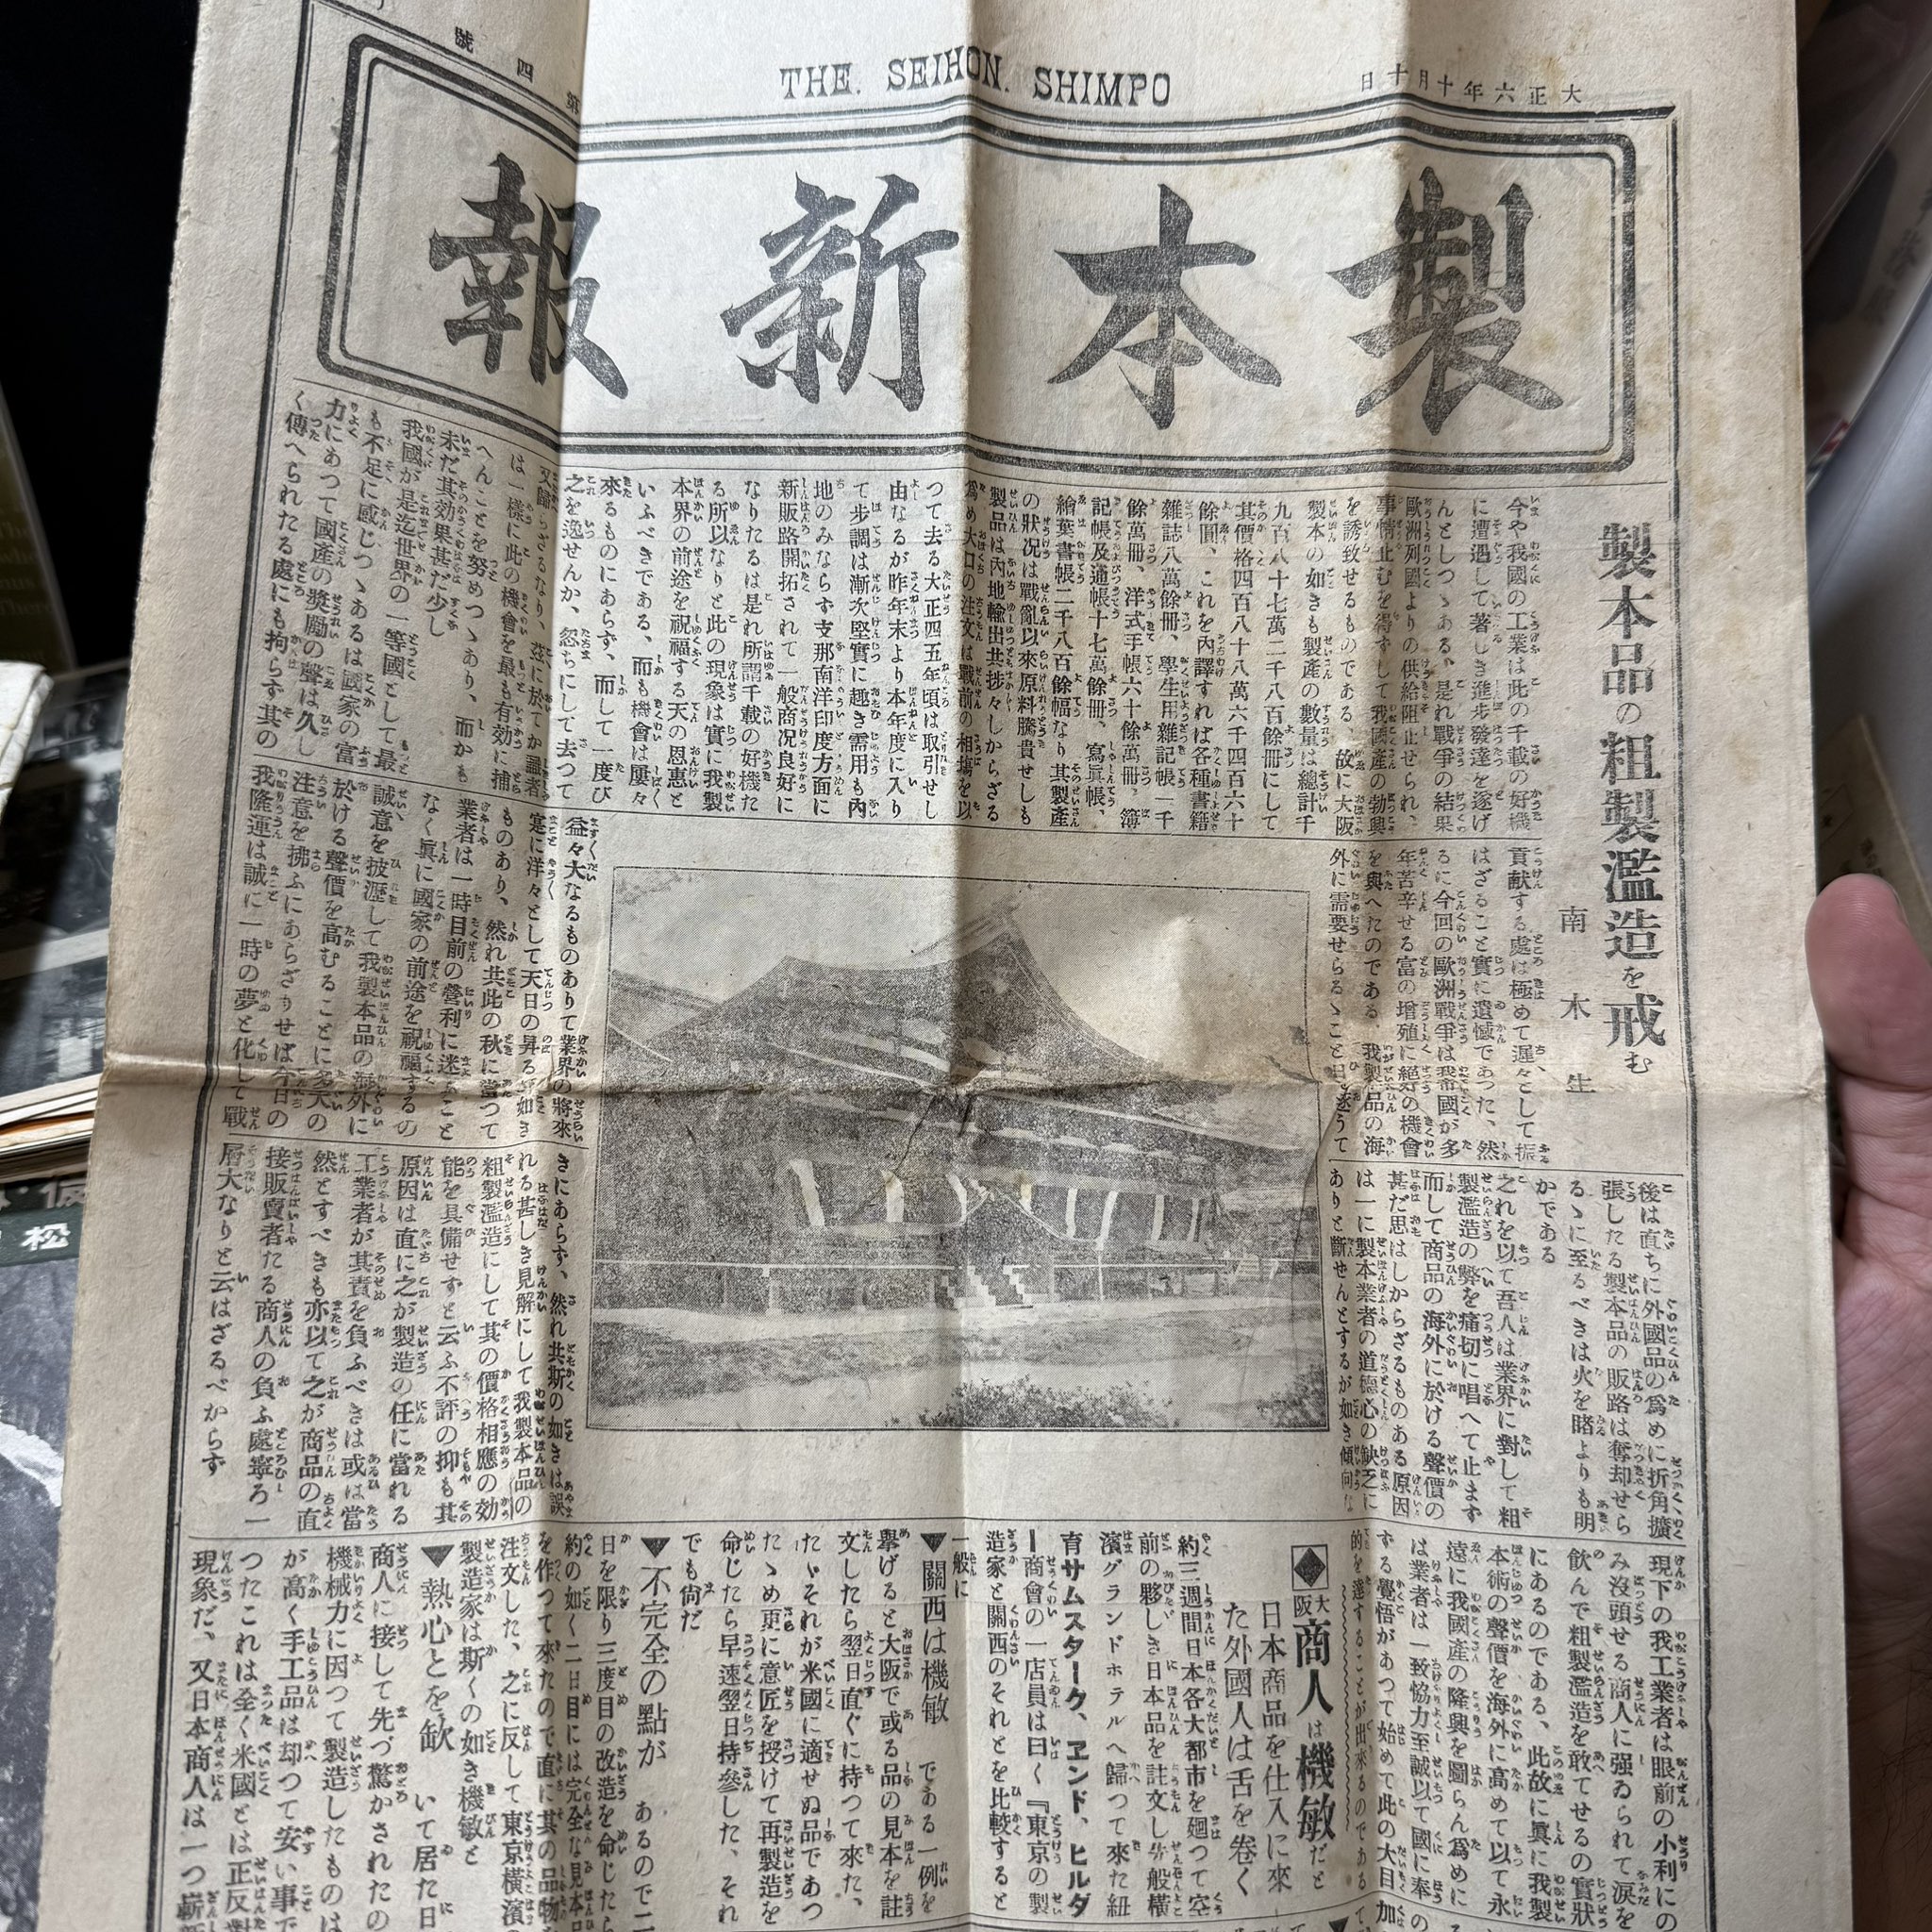 大正六年十月十日
THE. SEIHON. SHIMPO
第四號
製本新報
製本品の粗製濫造を戒む
南木生
今や我國の工業は此の千載の好機
に遭遇して著しき進歩發達を遂げ
んとしつゝある、是れ戰爭の結果
歐洲列國よりの供給阻止せられ、
事情止むを得ずして我國産の勃興
を誘致せるものである、故に大阪
製本の如きも製産の數量は總計千
九百八十七萬二千八百餘冊にして
其價格四百八十八萬六千四百六十
餘圓、これを內譯すれば各種書籍
雜誌八萬餘冊、學生用雜記帳一千
餘萬冊、洋式手帳六十餘萬冊、簿
記帳及通帳十七萬餘冊、寫眞帳、
繪葉書帳二千八百餘幅なり其製産
の狀况は戰亂以來原料騰貴せしも
製品は內地輸出共捗々しからざる
爲め大口の注文は戰前の相塲を以
つて去る大正四五年頃は取引せし
由なるが昨年末より本年度に入り
て步調は漸次堅實に趣き需用も內
地のみならず支那南洋印度方面に
新販路開拓されて一般商况良好に
なりたるは是れ所謂千載の好機た
る所以なりと此の現象は實に我製
本界の前途を祝福する天の恩惠と
いふべきである、而も機會は屢々
來るものにあらず、而して一度び
之を逸せんか、忽ちにして去つて
又歸らざるなり、茲に於てか識者
は一樣に此の機會を最も有効に捕
へんことを努めつゝあり、而かも
未だ其効果甚だ少し
我國が是迄世界の一等國として最
も不足に感じつゝあるは國家の富
力にあつて國産の奬勵の聲は久し
く傳へられたる處にも拘らず其の
貢献する處は極めて遲々として振
はざること實に遺憾であつた、然
るに今回の歐洲戰爭は我國が多
年苦辛せる富の增殖に絕好の機會
を與へたのである、我製品の海
外に需要せらるゝこと日を逐うて
益々大なるものありて業界の將來
寔に洋々として天日の昇るが如き
ものあり、然れ共此の秋に當つて
業者は一時目前の營利に迷ふこと
なく眞に國家の前途を祝福するの
誠意を披瀝して我製本品の海外に
於ける聲價を高むることに多大の
注意を拂ふにあらざりせば今日の
我隆運は誠に一時の夢と化して戰
後は直ちに外國品の爲めに折角擴
張したる製本品の販路は奪却せら
るゝに至るべきは火を睹よりも明
かである
之れを以て吾人は業界に對して粗
製濫造の弊を痛切に唱へて止まず
而して商品の海外に於ける聲價の
甚だ思はしからざるものある原因
は一に製本業者の道德心の缺乏に
ありと斷せんとするが如き傾向な
きにあらず、然れ共斯の如きは誤
れる甚しき見解にして我製本品の
粗製濫造にして其の價格相應の効
能を具備せずと云ふ不評の抑も其
原因は直に之が製造の任に當れる
工業者が其責を負ふべきは或は當
然とすべきも亦以て之が商品の直
接販賣者たる商人の負ふ處寧ろ一
層大なりと云はざるべからず
現下の我工業者は眼前の小利にの
み沒頭せる商人に强ゐられて淚を
飲んで粗製濫造を敢てせるの實狀
にあるのである、此故に眞に我製
本術の聲價を海外に高めて以て永
遠に我國産の隆興を圖らん爲めに
は業者は一致協力至誠以て國に奉
する覺悟があつて始めて此の大目
的を達することが出來るのである
◆大阪商人は機敏だと
日本商品を仕入に來
た外國人は舌を卷く
約三週間日本各大都市を廻つて空
前の夥しき日本品を註文し先般橫
濱グランドホテルへ歸つて來た紐
育サムスターク、エンド、ヒルダ
ー商會の一店員は曰く『東京の製
造家と關西のそれとを比較すると
一般に
▼關西は機敏 である一例を
擧げると大阪で或る品の見本を註
文したら翌日直ぐに持つて來た、
たゞそれが米國に適せぬ品であつ
たゝめ更に意匠を授けて再製造を
命じたら早速翌日持參した、それ
でも尙だ
▼不完全の點が あるので二
日を限り三度目の改造を命じたら
約の如く二日目には完全な見本品
を作つて來たので直に其の品物を
注文した、之に反して東京橫濱
製造家は斯くの如き機敏と
▼熱心とを缺 いて居た日
商人に接して先づ驚かされたの
機械力に因つて製造したものは
が高く手工品は却つて安い事で
つたこれは全く米國とは正反對
現象だ、又日本商人は一つ嶄新